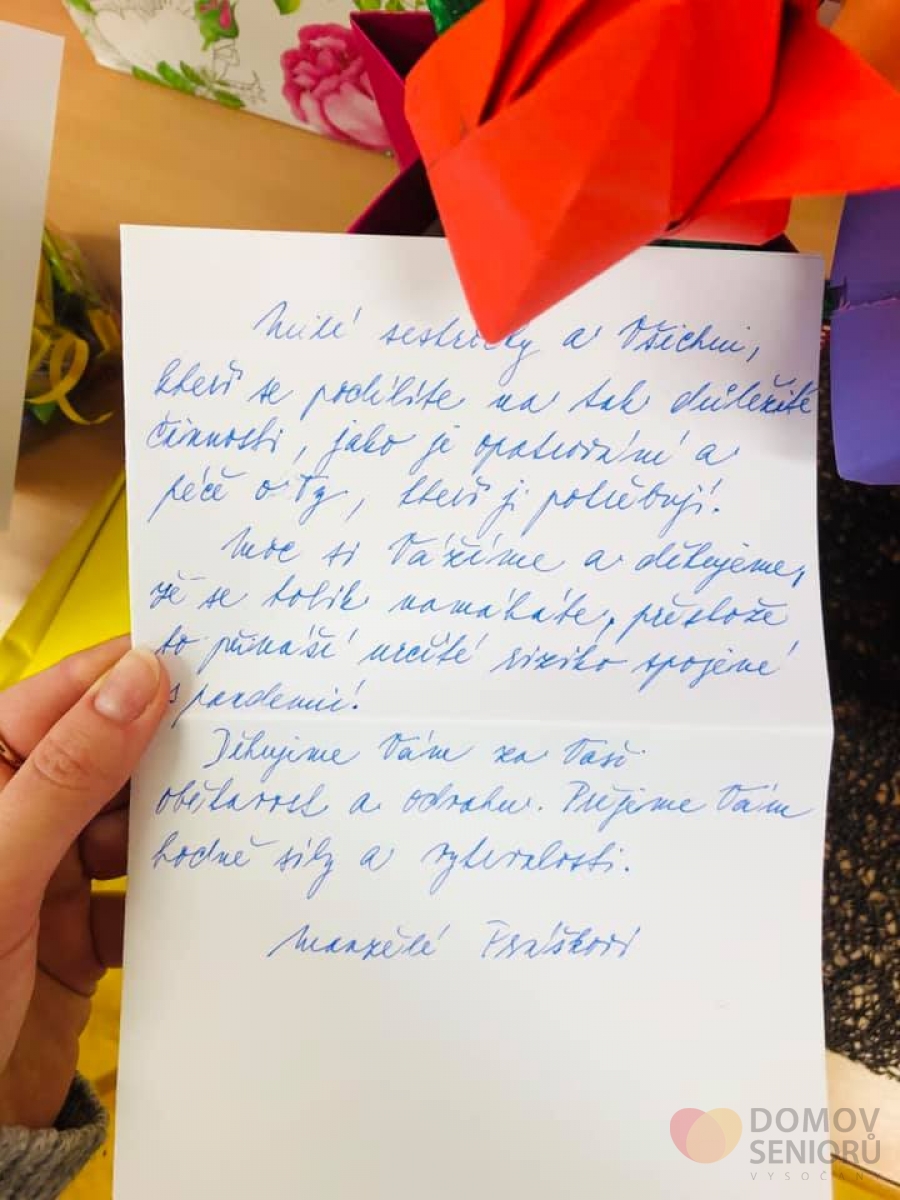 Milé sestřičky a Všichni,
kteří se podílíte na tak důležité
činnosti, jako je opatrování a
péče o Ty, kteří ji potřebují.
Moc si Vážíme a děkujeme,
že se tolik namáháte, přestože
to přináší určité riziko spojené
s pandemií.
Děkujeme Vám za Vaši
obětavost a odvahu. Přejeme Vám
hodně síly a vytrvalosti.
Manželé Práškovi
DOMOV
SENIORŮ
VYSOČANY